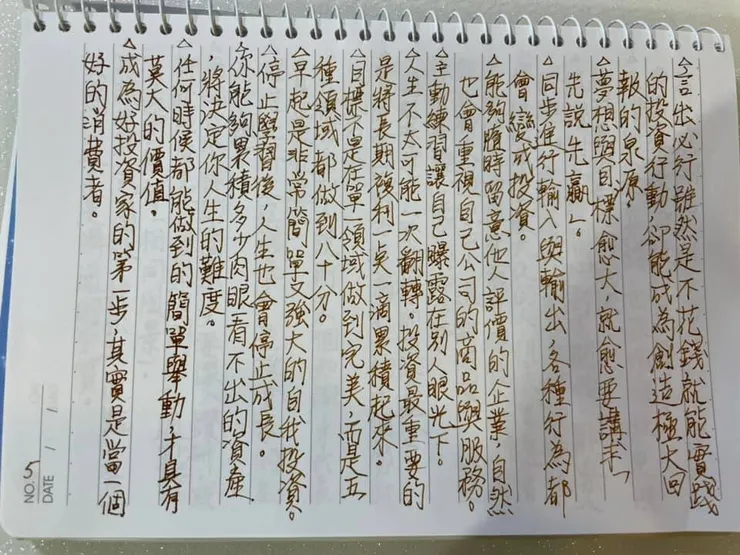 △言出必行雖然是不花錢就能實踐
的投資行動,卻能成為創造極大回
報的泉源。
△夢想與目標愈大,就愈要講求「
先說先贏」。
△同步進行輸入與輸出,各種行為都
會變成投資。
△能夠隨時留意他人評價的企業,自然
也會重視自己公司的商品與服務。
△主動練習讓自己曝露在別人眼光下。
△人生不太可能一次翻轉。投資最重要的
是將長期複利一點一滴累積起來。
△目標不是在單一領域做到完美,而是五
種領域都做到八十分。
△早起是非常簡單又強大的自我投資。
△停止學習後,人生也會停止成長。
△你能夠累積多少肉眼看不出的資產
,將決定你人生的難度。
△任何時候都能做到的簡單舉動,才具有
莫大的價值。
△成為好投資家的第一步,其實是當一個
好的消費者。
NO. 5
DATE / /